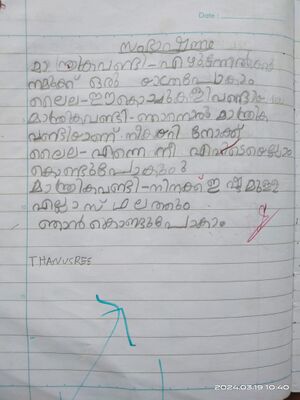 Date :
സംഭാഷണം
മാന്ത്രികവണ്ടി-എഴുന്നേൽക്കൂ
നമുക്ക് ഒരു യാത്രപോകാം
ലൈല-ഈകൊച്ചുകളിവണ്ടിയോ
മാന്ത്രികവണ്ടി-ഞാനൊരു മാന്ത്രിക
വണ്ടിയാണ് നീകയറി നോക്ക്
ലൈല-എന്നെ നീ എവിടെയെല്ലാം
കൊണ്ടുപോകും
മാന്ത്രികവണ്ടി-നിനക്ക് ഇഷ്ടമുള്ള
എല്ലാ സ്ഥലത്തും
ഞാൻ കൊണ്ടുപോകാം
THANUSREE
2024.03.19 10:40